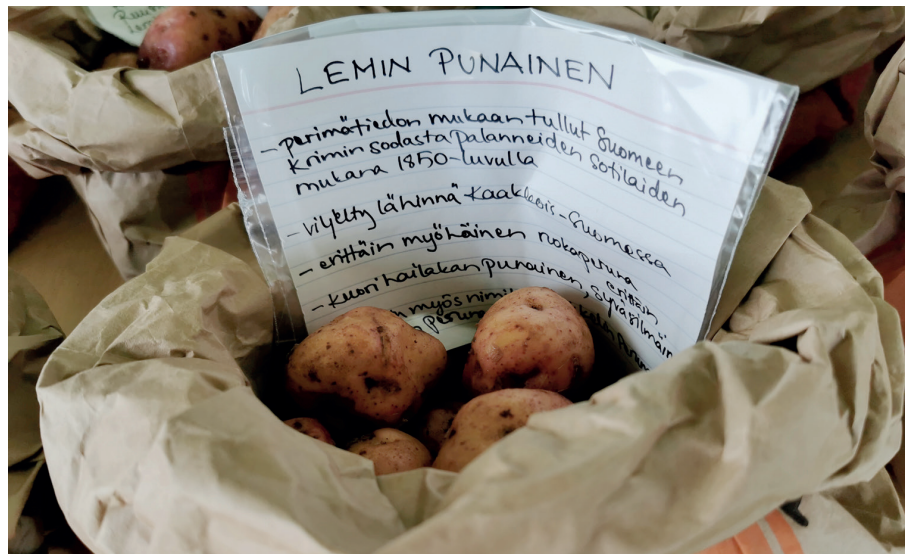 LEMIN PUNAINEN
- perimätiedon mukaan tullut Suomeen
Krimin sodasta palanneiden sotilaiden
mukana 1850-luvulla
- viljelty lähinnä Kaakkois-Suomessa
- erittäin myöhäinen ruokaperuna
- kuori hailakan punainen, erittäin
syväsilmäin
myös nimi